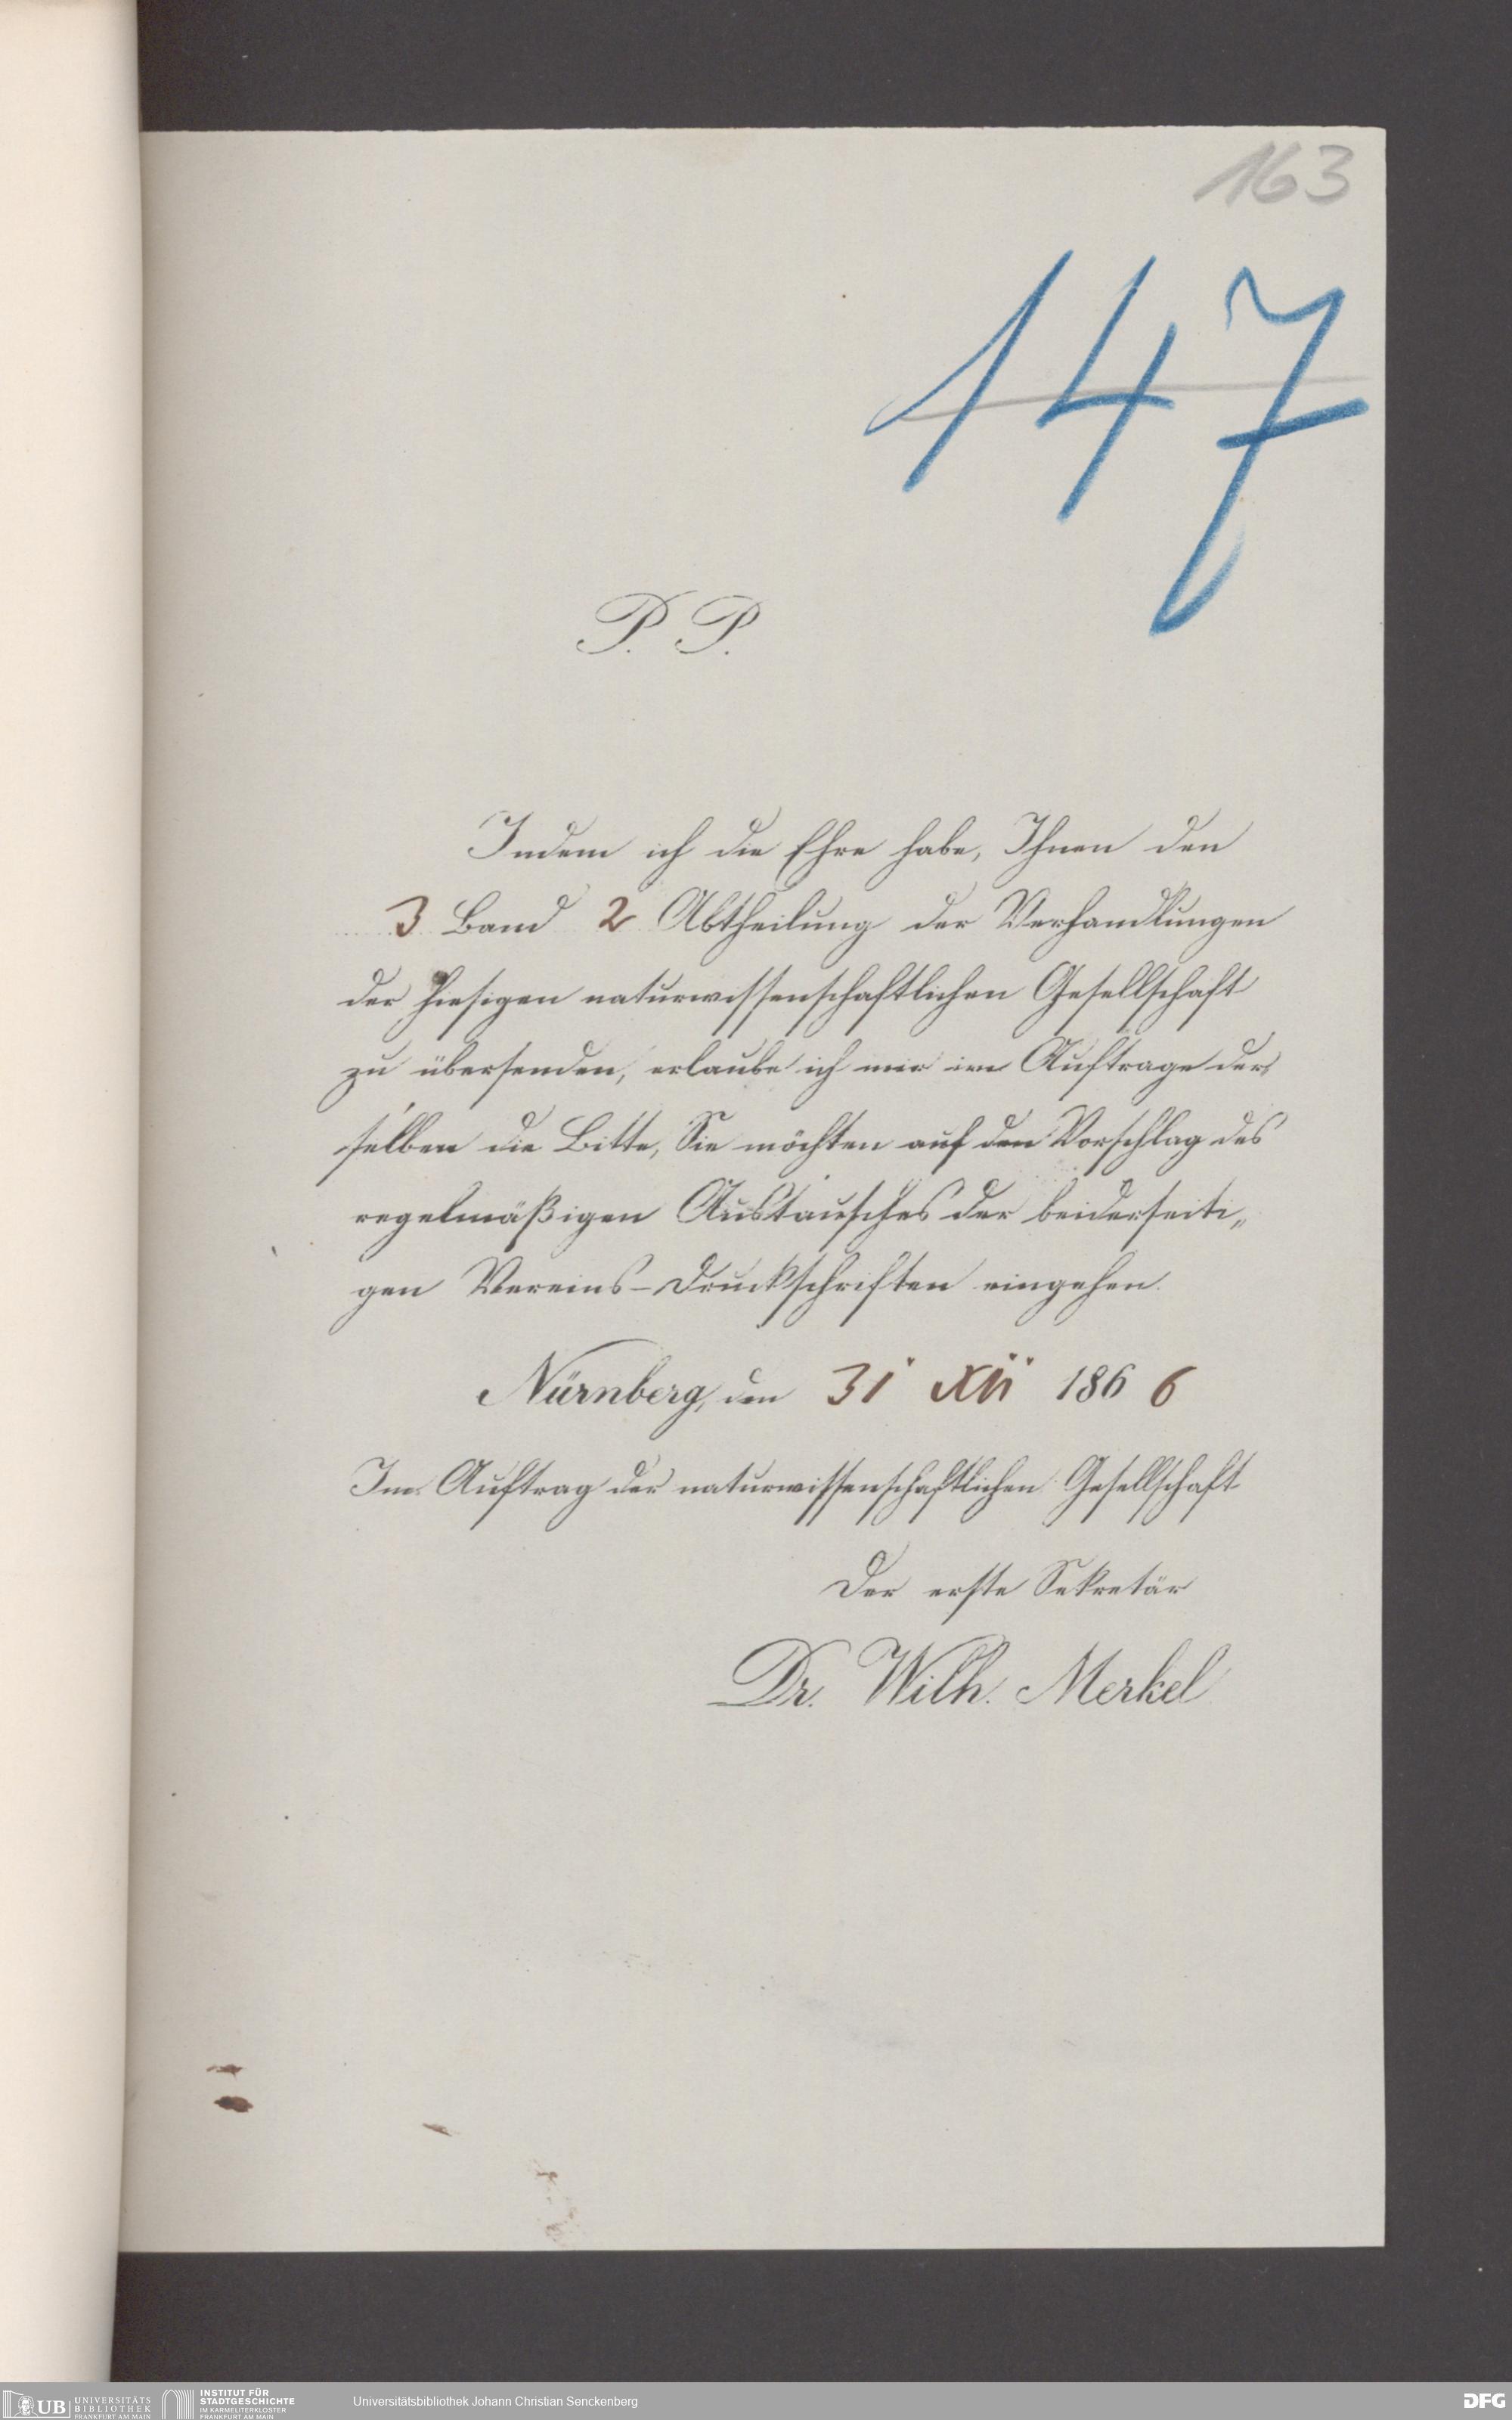 163
147
P. P.
Indem ich die Ehre habe, Ihnen den
3 Band 2 Abtheilung der Verhandlungen
der hiesigen naturwissenschaftlichen Gesellschaft
zu übersenden, erlaube ich mir im Auftrage der,
selben die Bitte, Sie möchten auf den Vorschlag des
regelmäßigen Austausches der beiderseiti„
gen Vereins-Druckschriften eingehen.
Nürnberg, den 31 XII 1866
Im Auftrag der naturwissenschaftlichen Gesellschaft
Der erste Sekretär
Dr. Wilh. Merkel
UB UNIVERSITÄTS BIBLIOTHEK FRANKFURT AM MAIN
INSTITUT FÜR STADTGESCHICHTE IM KARMELITERKLOSTER FRANKFURT AM MAIN
Universitätsbibliothek Johann Christian Senckenberg
DFG